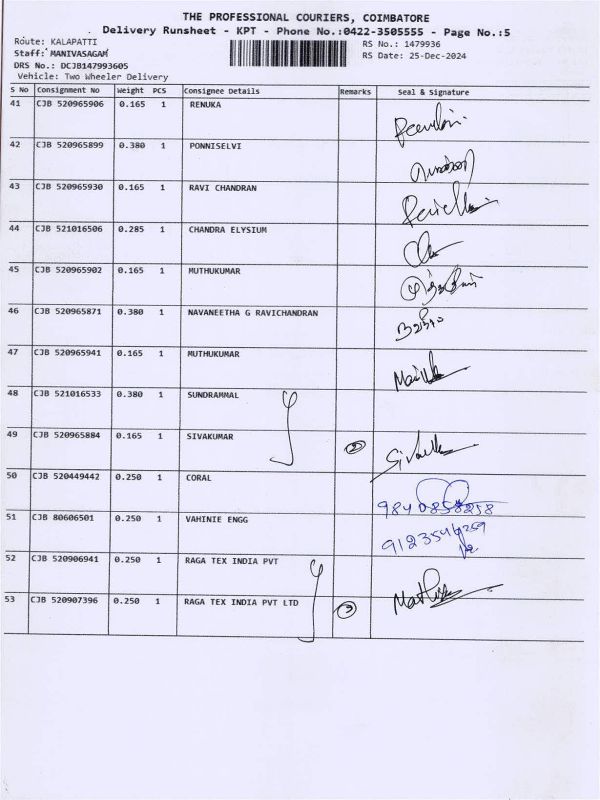 THE PROFESSIONAL COURIERS, COIMBATORE
Delivery Runsheet - KPT - Phone No.:0422-3505555 - Page No.:5
Route: KALAPATTI
RS No.: 1479936
Staff: MANIVASAGAM
RS Date: 25-Dec-2024
DRS No.: DCJB147993605
Vehicle: Two Wheeler Delivery
S No Consignment No Weight PCS Consignee Details Remarks Seal & Signature
41 CJB 520965906 0.165 1 RENUKA
42 CJB 520965899 0.380 1 PONNISELVI
43 CJB 520965930 0.165 1 RAVI CHANDRAN
44 CJB 521016506 0.285 1 CHANDRA ELYSIUM
45 CJB 520965902 0.165 1 MUTHUKUMAR
46 CJB 520965871 0.380 1 NAVANEETHA G RAVICHANDRAN
47 CJB 520965941 0.165 1 MUTHUKUMAR
48 CJB 521016533 0.380 1 SUNDRAMMAL
49 CJB 520965884 0.165 1 SIVAKUMAR 2
50 CJB 520449442 0.250 1 CORAL 9840858258
51 CJB 80606501 0.250 1 VAHINIE ENGG
52 CJB 520906941 0.250 1 RAGA TEX INDIA PVT
53 CJB 520907396 0.250 1 RAGA TEX INDIA PVT LTD